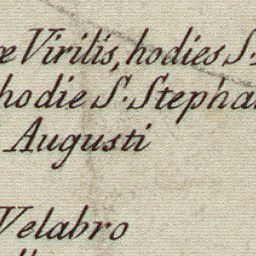 æ Virilis, hodies S.
hodie S. Stepha
Augusti
Velabro